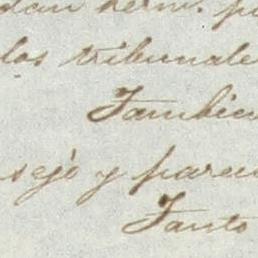 los tribunale
Tambien
sejo y parec
Tanto